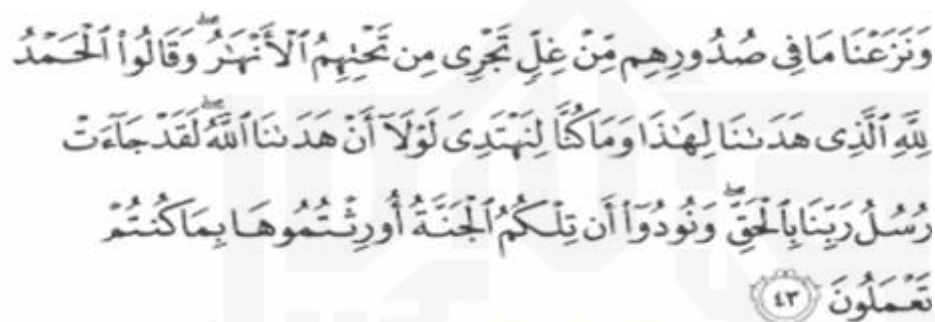 وَنَزَعْنَا مَا فِى صُدُورِهِم مِّنْ غِلٍّ تَجْرِى مِن تَحْتِهِمُ ٱلْأَنْهَٰرُ ۖ وَقَالُوا۟ ٱلْحَمْدُ
لِلَّهِ ٱلَّذِى هَدَىٰنَا لِهَٰذَا وَمَا كُنَّا لِنَهْتَدِىَ لَوْلَآ أَنْ هَدَىٰنَا ٱللَّهُ ۖ لَقَدْ جَآءَتْ
رُسُلُ رَبِّنَا بِٱلْحَقِّ ۖ وَنُودُوٓا۟ أَن تِلْكُمُ ٱلْجَنَّةُ أُورِثْتُمُوهَا بِمَا كُنتُمْ
تَعْمَلُونَ ٤٣